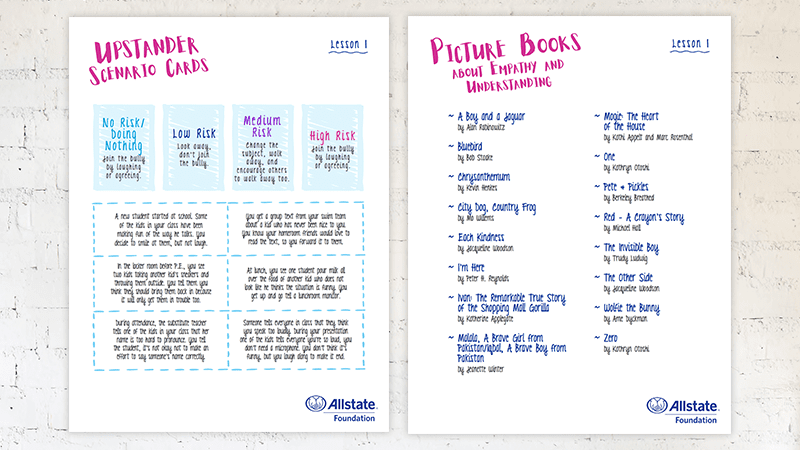 Upstander
Scenario Cards
Lesson 1
No Risk/
Doing
Nothing
Join the bully
by laughing
or agreeing.
Low Risk
Look away,
don't join
the bully.
Medium
Risk
Change the
subject, walk
away, and
encourage others
to walk away too.
High Risk
Join the bully
by laughing
or agreeing.
A new student started at school. Some
of the kids in your class have been
making fun of the way he talks. You
decide to smile at them, but not laugh.
You get a group text from your swim team
about a kid who has never been nice to you.
You know your homeroom friends would love to
read the text, so you forward it to them.
In the locker room before P.E., you see
two kids taking another kid's sneakers and
throwing them outside. You tell them you
think they should bring them back in because
it will only get them in trouble too.
At lunch, you see one student pour milk all
over the food of another kid who does not
look like he thinks the situation is funny. You
get up and go tell a lunchroom monitor.
During attendance, the substitute teacher
tells one of the kids in your class that her
name is too hard to pronounce. You tell
the student, it's not okay not to make an
effort to say someone's name correctly.
Someone tells everyone in class that they think
you speak too loudly. During your presentation
one of the kids tells everyone you're so loud, you
don't need a microphone. You don't think it's
funny, but you laugh along to make it end.
Allstate
Foundation
Picture Books
about Empathy and
Understanding
Lesson 1
~ A Boy and a Jaguar
by Alan Rabinowitz
~ Bluebird
by Bob Staake
~ Chrysanthemum
by Kevin Henkes
~ City Dog, Country Frog
by Mo Willems
~ Each Kindness
by Jacqueline Woodson
~ I'm Here
by Peter H. Reynolds
~ Ivan: The Remarkable True Story
of the Shopping Mall Gorilla
by Katherine Applegate
~ Malala, A Brave Girl from
Pakistan/Iqbal, A Brave Boy from
Pakistan
by Jeanette Winter
~ Mogie: The Heart
of the House
by Kathi Appelt and Marc Rosenthal
~ One
by Kathryn Otoshi
~ Pete & Pickles
by Berkeley Breathed
~ Red - A Crayon's Story
by Michael Hall
~ The Invisible Boy
by Trudy Ludwig
~ The Other Side
by Jacqueline Woodson
~ Wolfie the Bunny
by Ame Dyckman
~ Zero
by Kathryn Otoshi
Allstate
Foundation